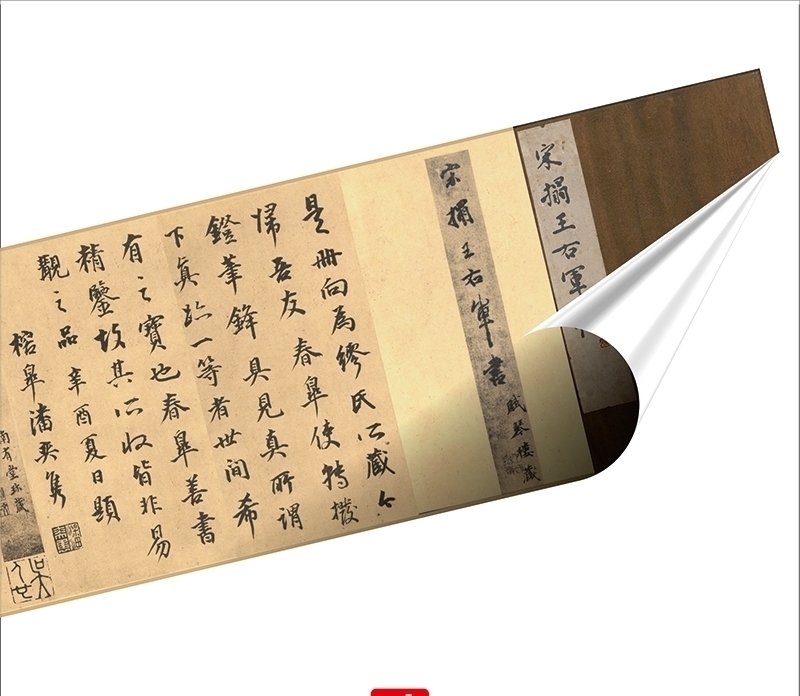 宋搨王右軍
宋搨王右軍書
賦琴樓藏
是冊向為繆氏所藏今
歸吾友春皋使轉撥
鐙筆鋒具見真所謂
下真跡一等者世間希
有之寶也春皋善書
精鑒故其所收皆非易
覯之品辛酉夏日題
榕皋潘奕雋